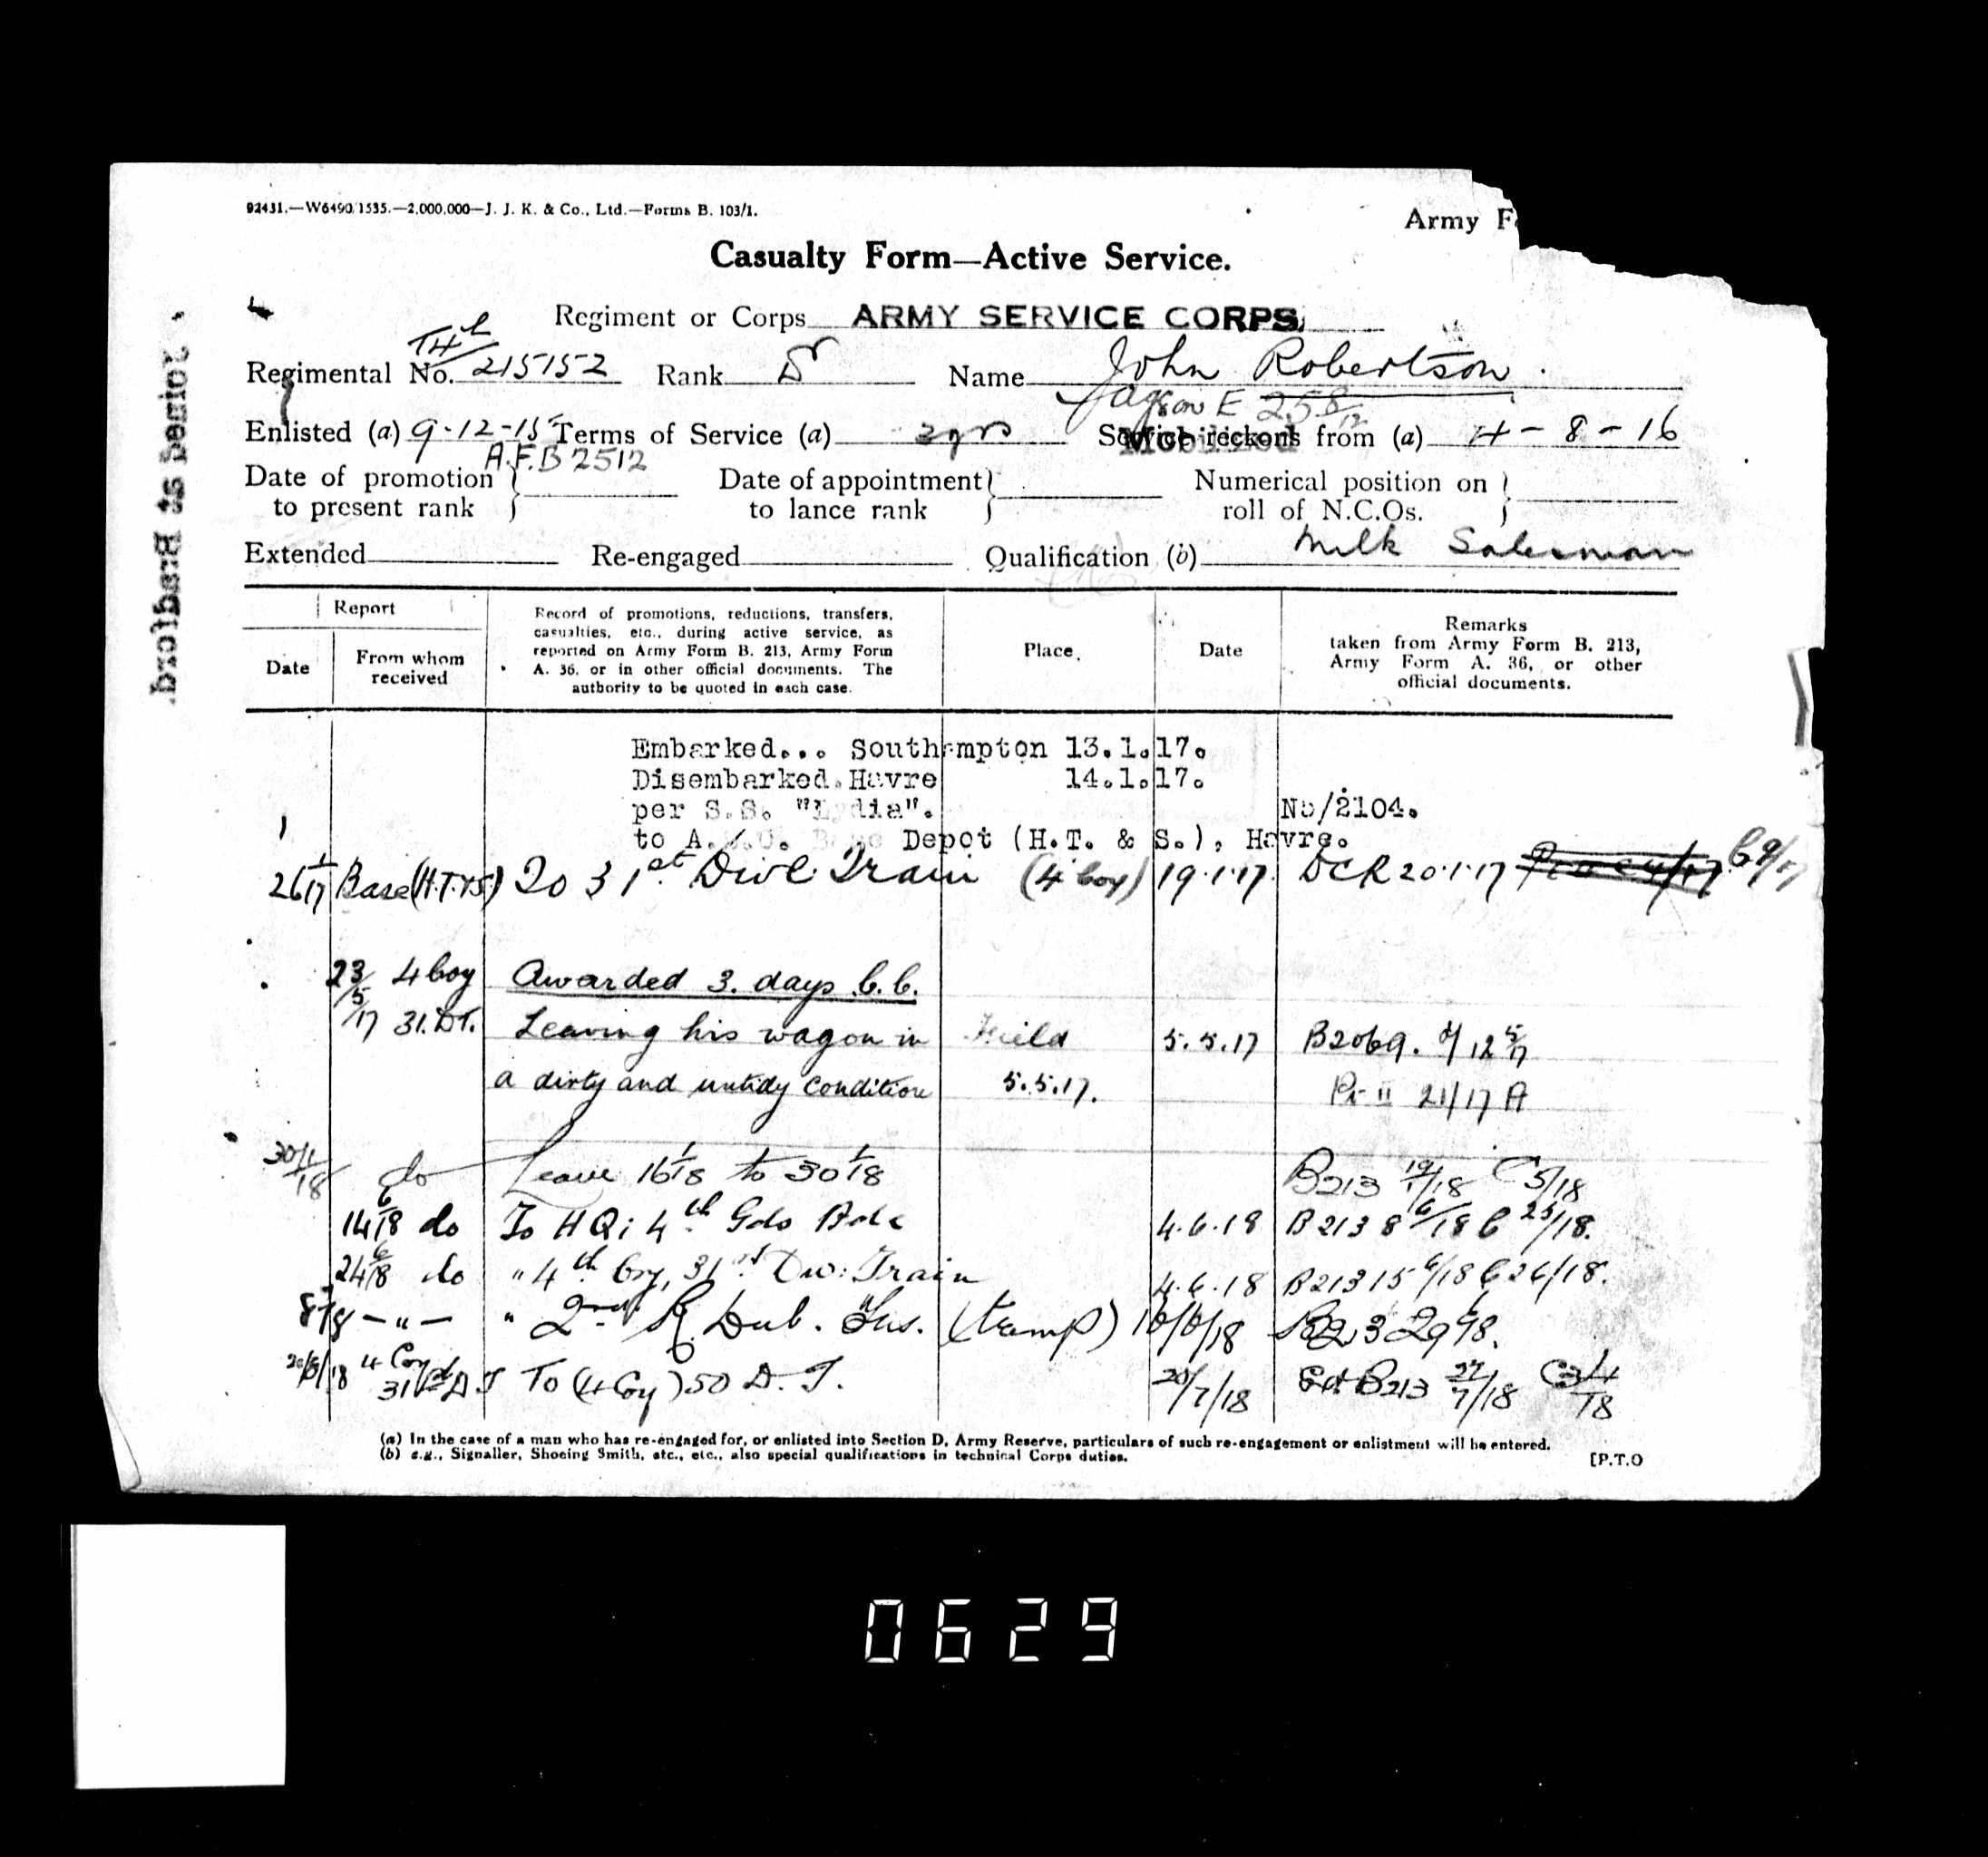 92431.—W6490/1535.—2,000,000—J. J. K. & Co., Ltd.—Forms B. 103/1.
Army F
Casualty Form—Active Service.
Regiment or Corps ARMY SERVICE CORPS
Regimental No. T4/215152 Rank Dr Name John Robertson.
Enlisted (a) 9-12-15 Terms of Service (a) Service reckons from (a) 4-8-16
Mobilized
A.F.B 2512
Date of promotion to present rank
Date of appointment to lance rank
Numerical position on roll of N.C.Os.
Extended Re-engaged Qualification (b) Milk Salesman
Joined at Bradford.
Report
Date
From whom received
Record of promotions, reductions, transfers, casualties, etc., during active service, as reported on Army Form B. 213, Army Form A. 36, or in other official documents. The authority to be quoted in each case.
Place
Date
Remarks taken from Army Form B. 213, Army Form A. 36, or other official documents.
Embarked... Southampton 13.1.17.
Disembarked. Havre 14.1.17.
per S.S. "Lydia". No/2104.
to A.S.C. Base Depot (H.T. & S.), Havre.
26/1/17 Base (H.T.&S.) To 31st Divl Train (4 Coy) 19.1.17. DCR 20.1.17
23/5/17 4 Coy 31. DT. Awarded 3. days C.C.
Leaving his wagon in Field 5.5.17 B2069. d/12 5/17
a dirty and untidy condition 5.5.17. Pt II 21/17 A
30/1/18 do Leave 16/1/18 to 30/1/18 B213 19/1/18 C5/18
14/6/18 do To HQ: 4th Gds Bde 4.6.18 B213 8/6/18 C 25/18.
24/6/18 do " 4th Coy, 31st Div: Train 4.6.18 B213 15/6/18 C26/18.
8/7/18 —"— " 2nd R. Dub. Fus. 16/6/18
4 Coy 31st D.T To (4 Coy) 50 D.T. 20/7/18 B213 27/7/18
(a) In the case of a man who has re-engaged for, or enlisted into Section D, Army Reserve, particulars of such re-engagement or enlistment will be entered.
(b) e.g., Signaller, Shoeing Smith, etc., etc., also special qualifications in technical Corps duties.
[P.T.O
0629